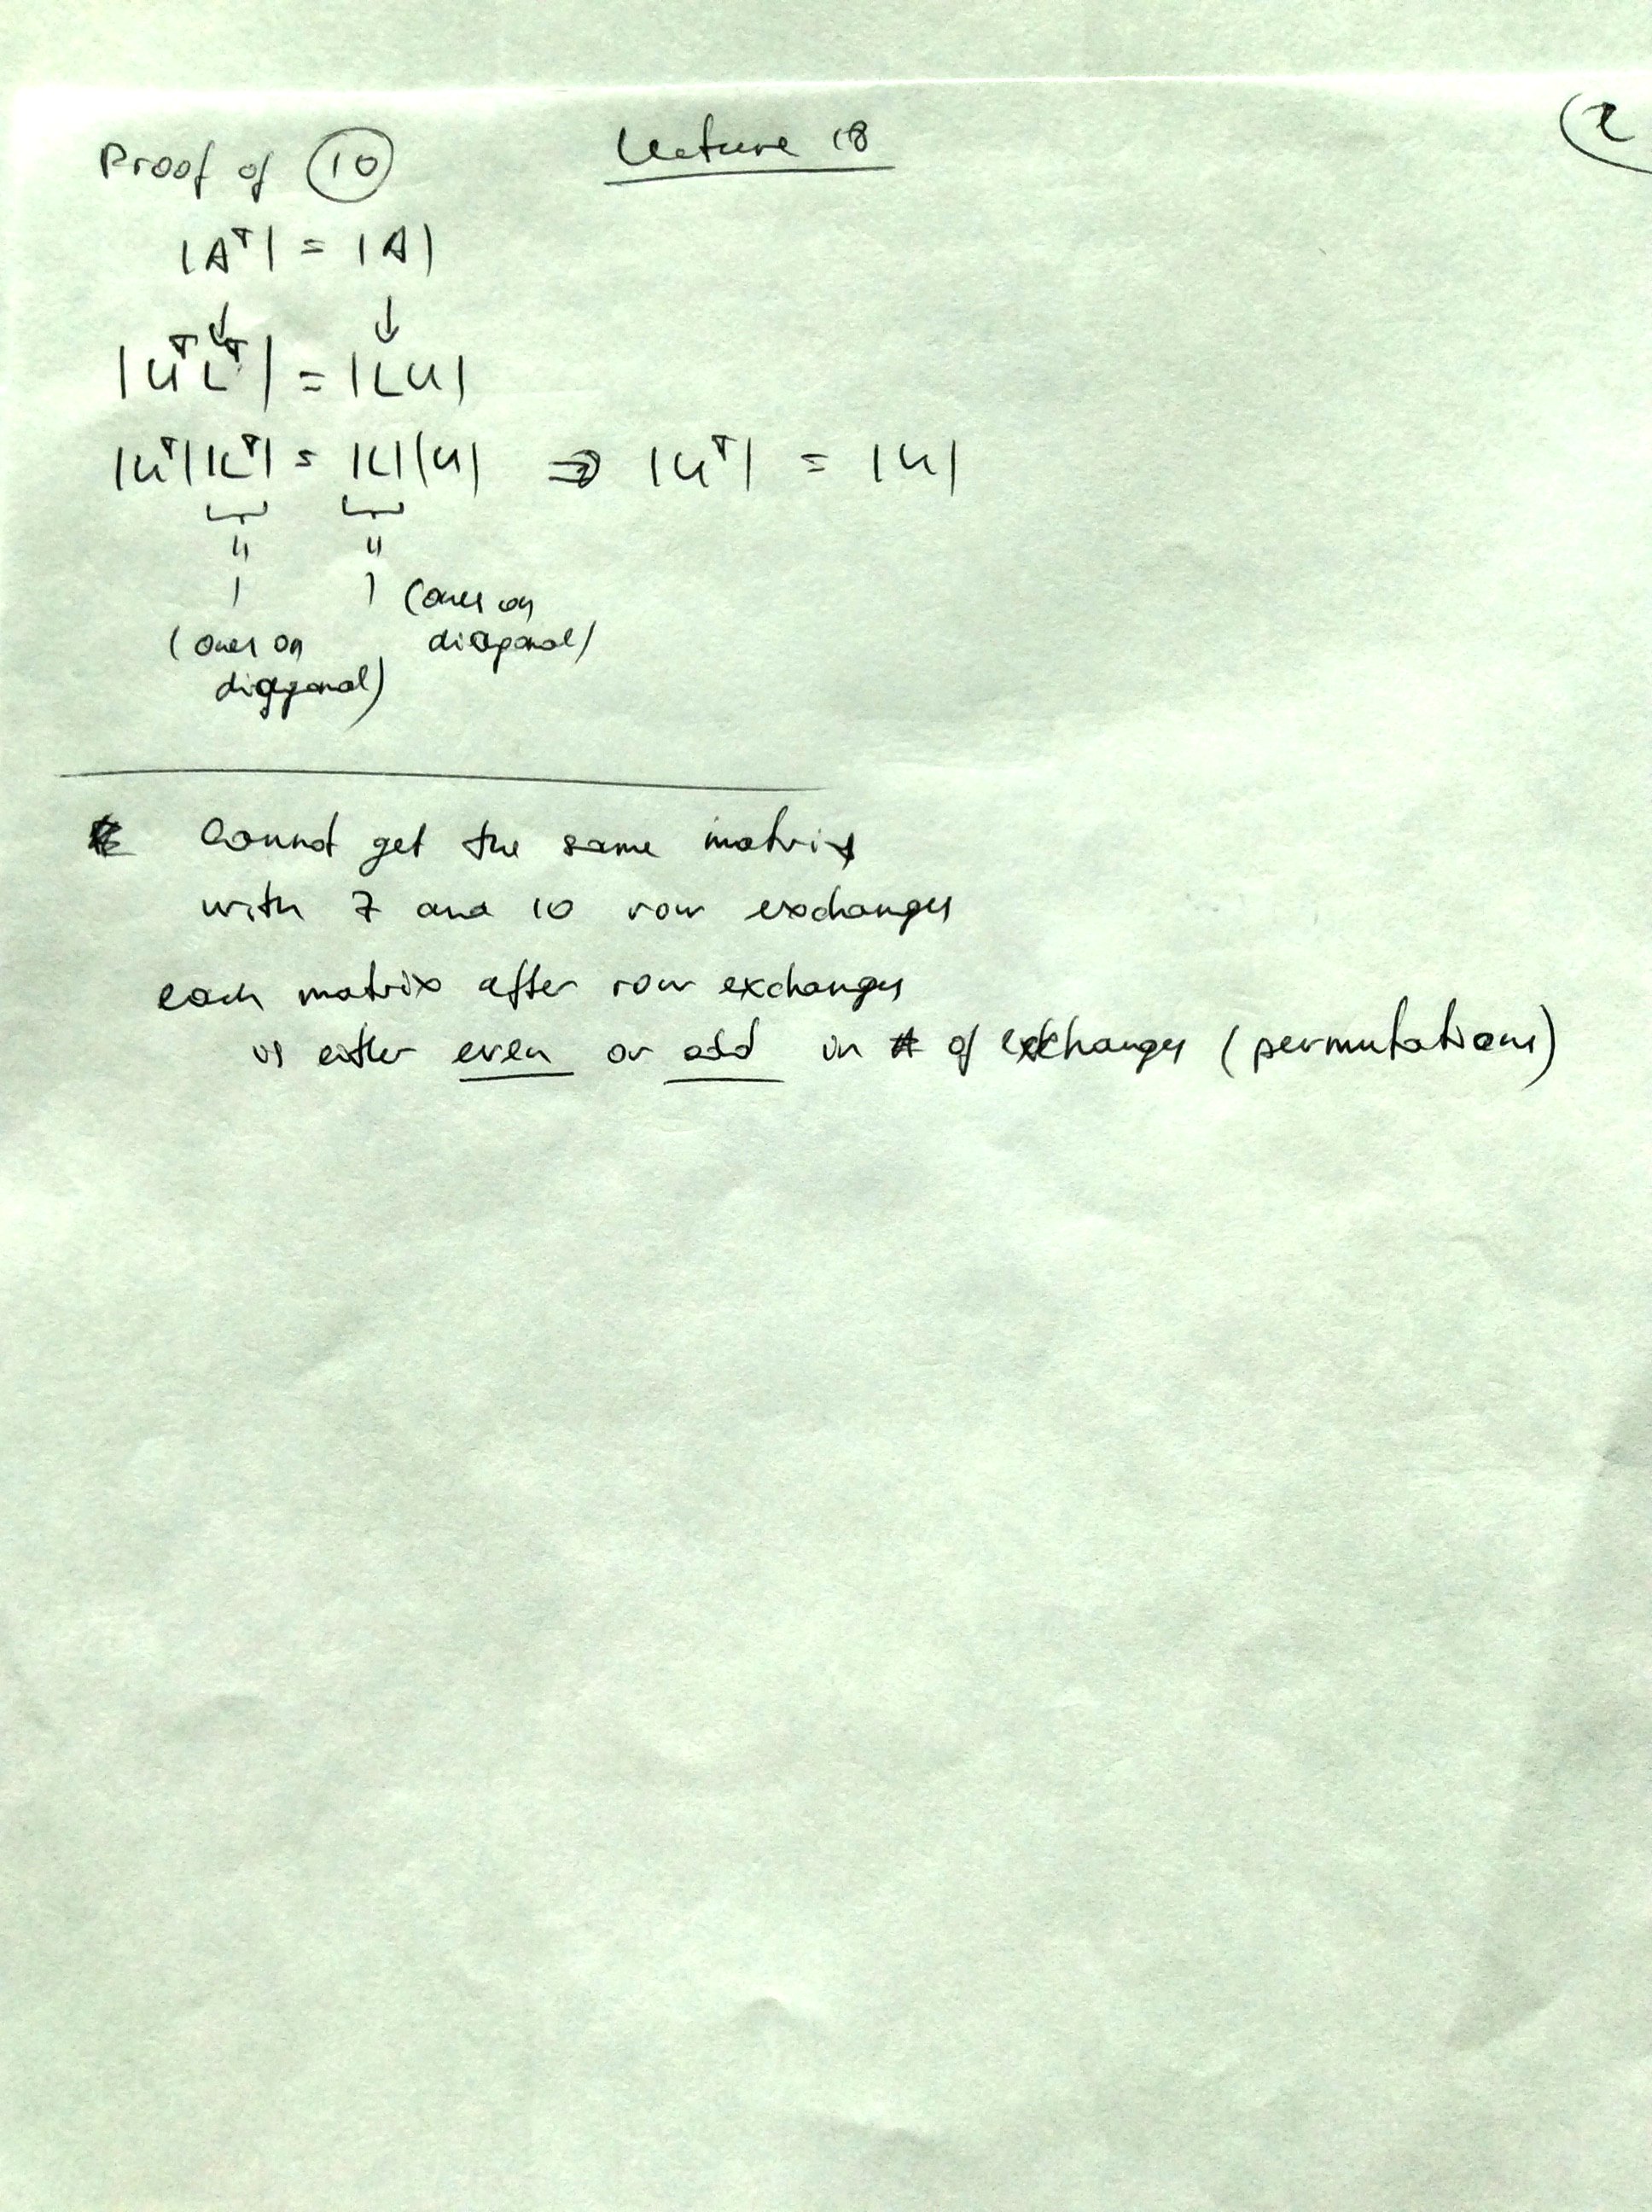 Lecture 18
Proof of 10
|Aᵀ| = |A|
↓ ↓
|UᵀLᵀ| = |LU|
|Uᵀ||Lᵀ| = |L||U| ⇒ |Uᵀ| = |U|
" "
1 1 (ones on
diagonal)
(ones on
diagonal)
Cannot get the same matrix
with 7 and 10 row exchanges
each matrix after row exchanges
is either even or odd in # of exchanges (permutations)